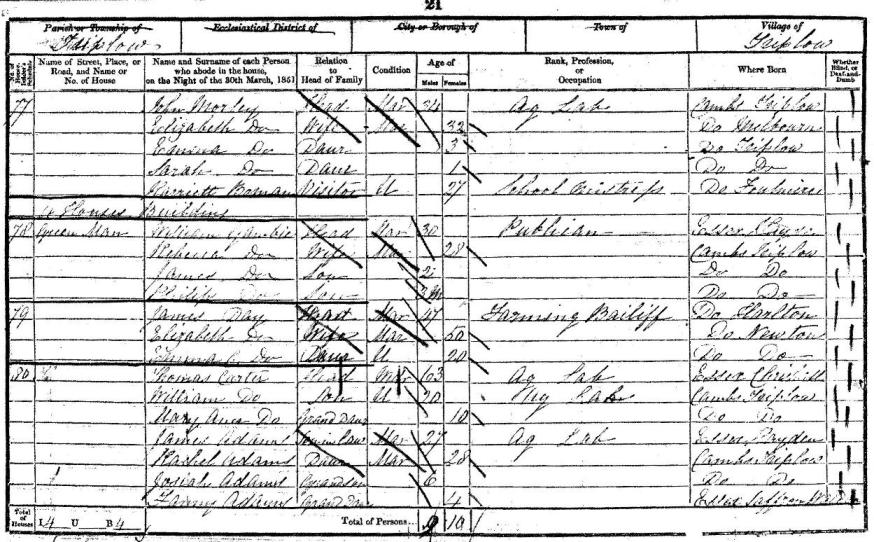 21
Parish or Township of Ecclesiastical District of City or Borough of Town of Village of
Triplow Triplow
No. of House-holder's Schedule Name of Street, Place, or Road, and Name or No. of House Name and Surname of each Person who abode in the house, on the Night of the 30th March, 1851 Relation to Head of Family Condition Age of Males Females Rank, Profession, or Occupation Where Born Whether Blind, or Deaf-and-Dumb
77 John Morley Head Mar 34 Ag Lab Cambs Triplow
Elizabeth Do Wife Mar 32 Do Melbourn
Emma Do Daur 3 Do Triplow
Sarah Do Daur 1 Do Do
Harriett Visitor U 27 School Mistress Do
Houses Building
78 Green Man William Head Mar 30 Publican Essex
Rebecca Do Wife Mar 28 Cambs Triplow
James Do Son 2 Do Do
Philip Do Son Do Do
79 James Day Mar 47 Farming Bailiff Do Harlton
Elizabeth Do Wife Mar 50 Do Newton
Emma C Do Daur U 20 Do Do
80 Thomas Carter Head 63 Ag Lab Essex
William Do Son U 20 Ag Lab Cambs Triplow
Mary Ann Do Grand Daur 10 Do Do
James Adams Son in Law Mar 27 Ag Lab Essex
Rachel Adams Daur Mar 28 Cambs Triplow
Josiah Adams Grandson 6 Do Do
Fanny Adams Grand Daur 4 Essex Saffron Walden
Total of Houses I 4 U B 4 Total of Persons... 9 10